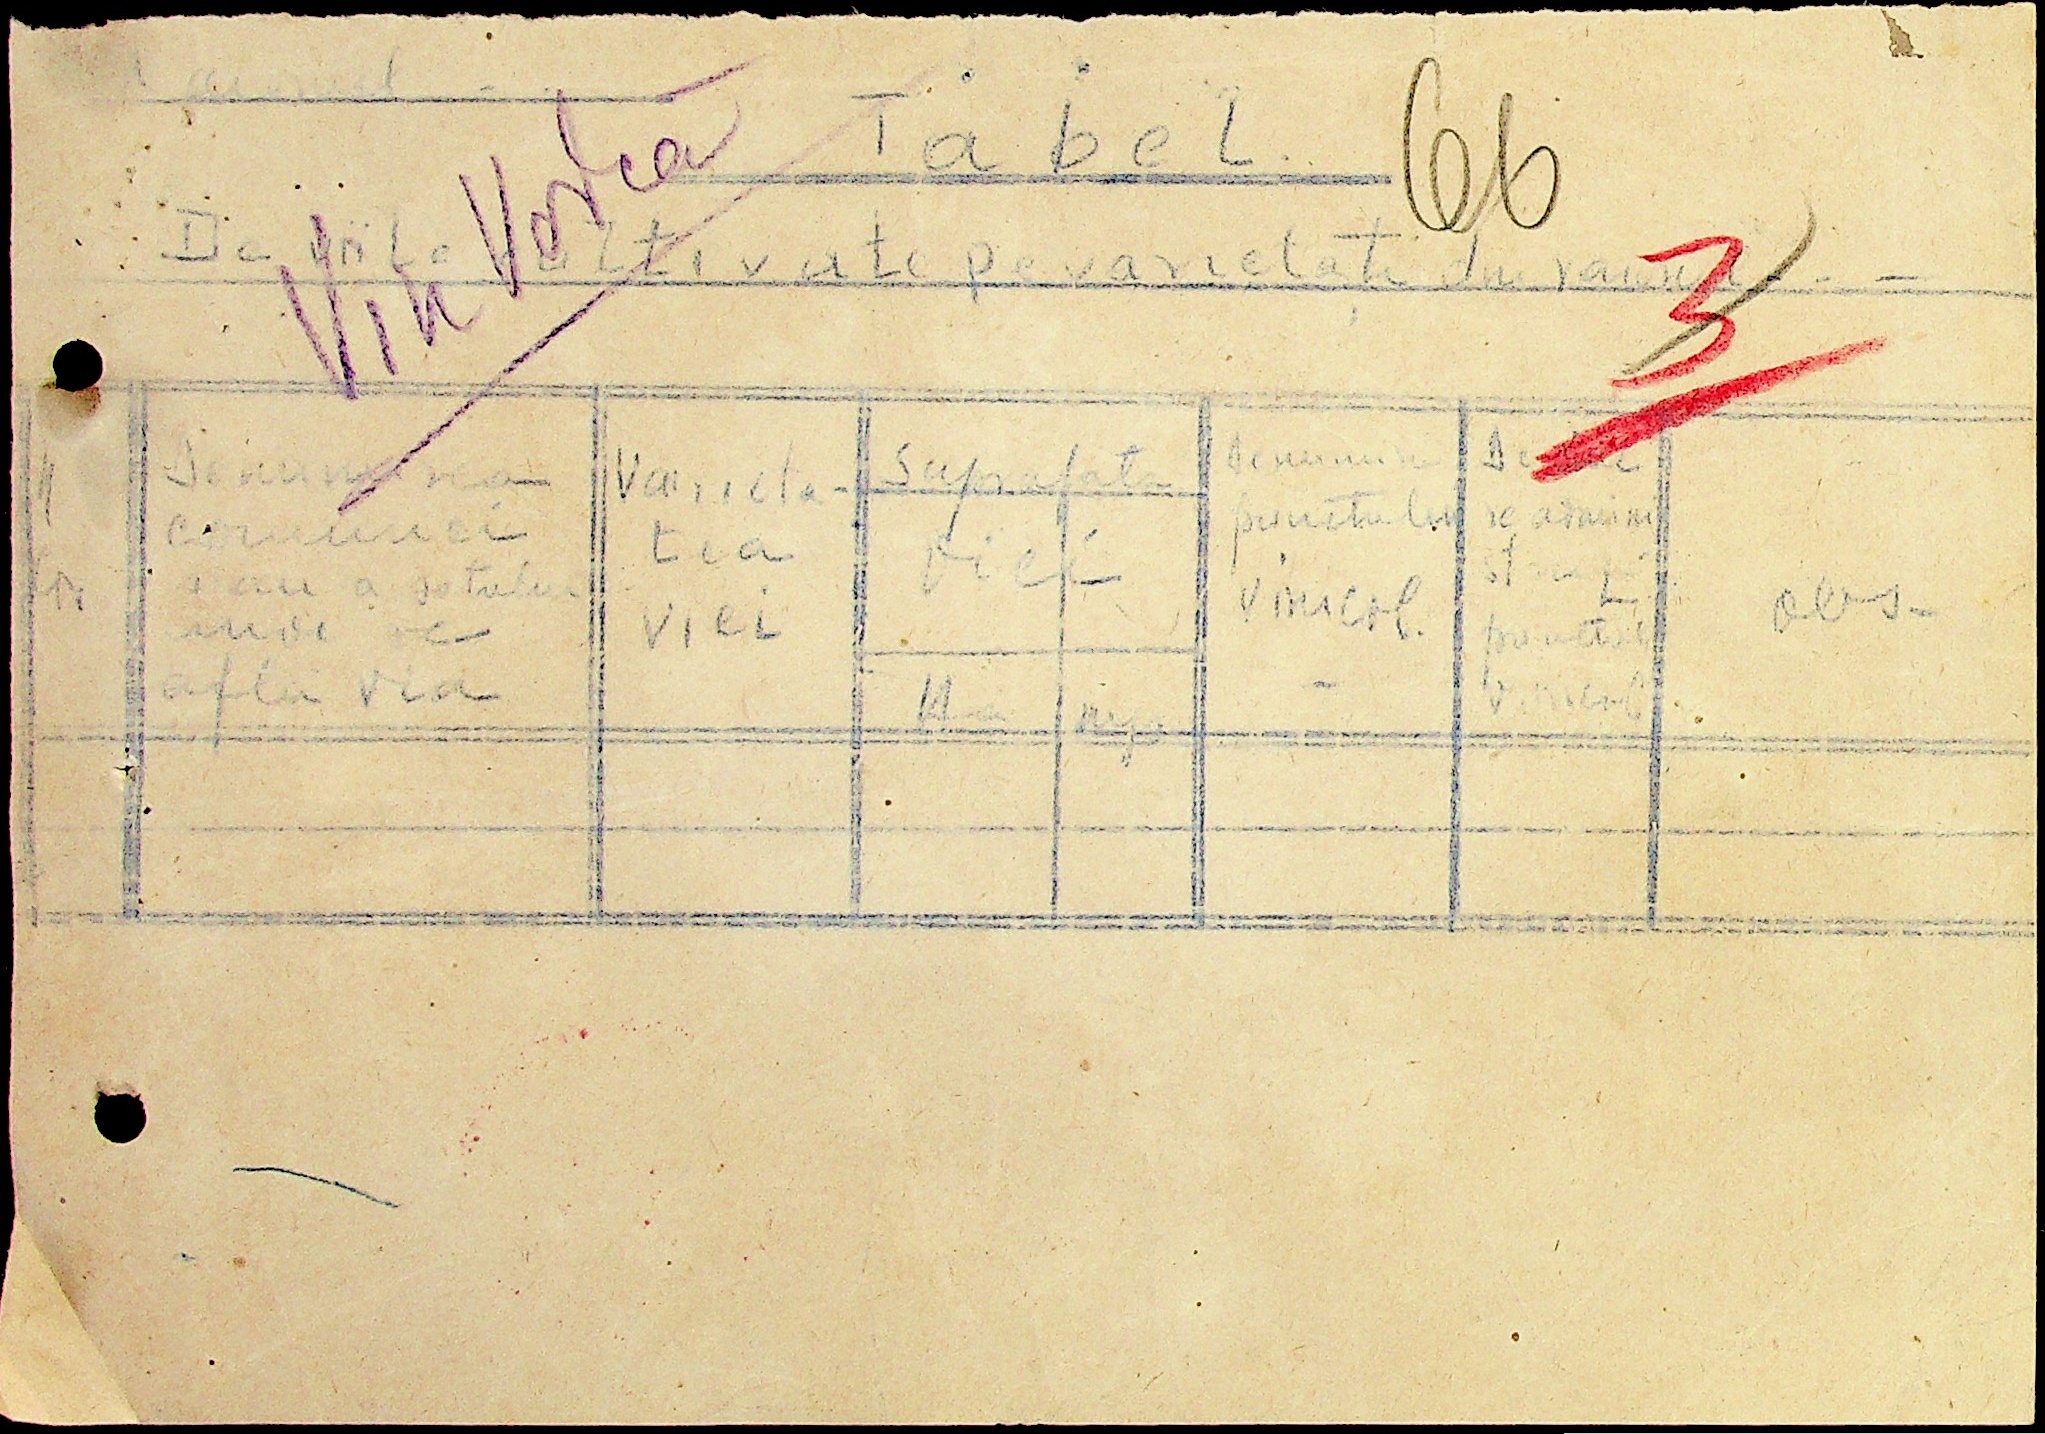 Tabel.
66
De viile cultivate pe varietăți din raionul - -
3
Vin Vorba
Nr
Denumirea
comunei
sau a satului
unde se
află via
Varieta-
tea
viei
Suprafața
viei
Ha
arji
Denumirea
punctului
vinicol.
-
De cine
se admini
punctul
vinicol
obs-